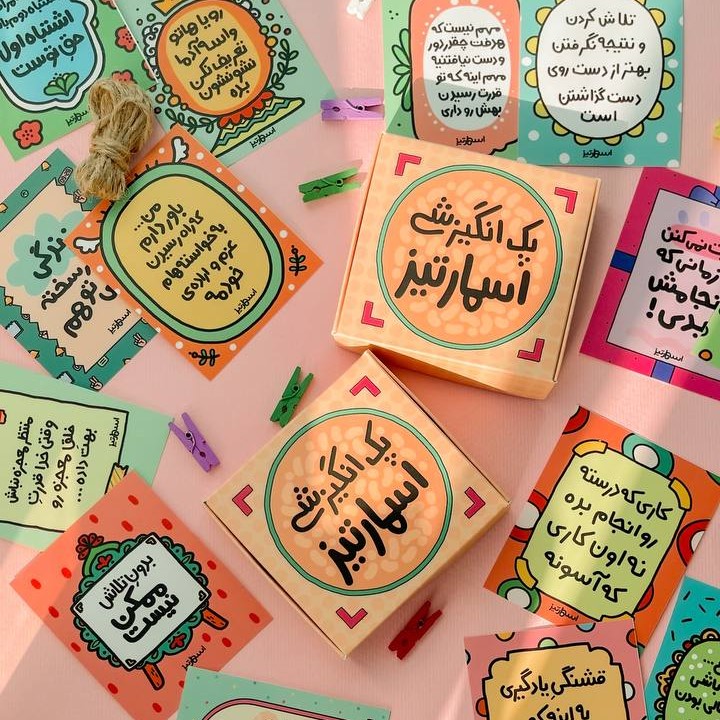 اشتباه اول
حق توست
رویاهاتو
واسه آدما
تعریف نکن
نشونشون
بده
اسمارتیز
مهم نیست که
هدفت چقدر دور
و دست نیافتنیه
مهم اینه که تو
قدرت رسیدن
بهش رو داری
اسمارتیز
تلاش کردن
و نتیجه نگرفتن
بهتر از دست روی
دست گذاشتن
است
اسمارتیز
من...
باور دارم
که راه رسیدن
به خواسته هام
عزم و اراده‌ی
خودمه
اسمارتیز
پک انگیزشی
اسمارتیز
زندگی
سخته
اسمارتیز
زمانی که
انجامش
بدی!
اسمارتیز
منتظر معجزه نباش
وقتی خدا قدرت
خلق معجزه رو
بهت داده...
اسمارتیز
پک انگیزشی
اسمارتیز
کاری که درسته
رو انجام بده
نه اون کاری
که آسونه
اسمارتیز
بدون تلاش
ممکن
نیست
اسمارتیز
قشنگی یادگیری
به اینه که